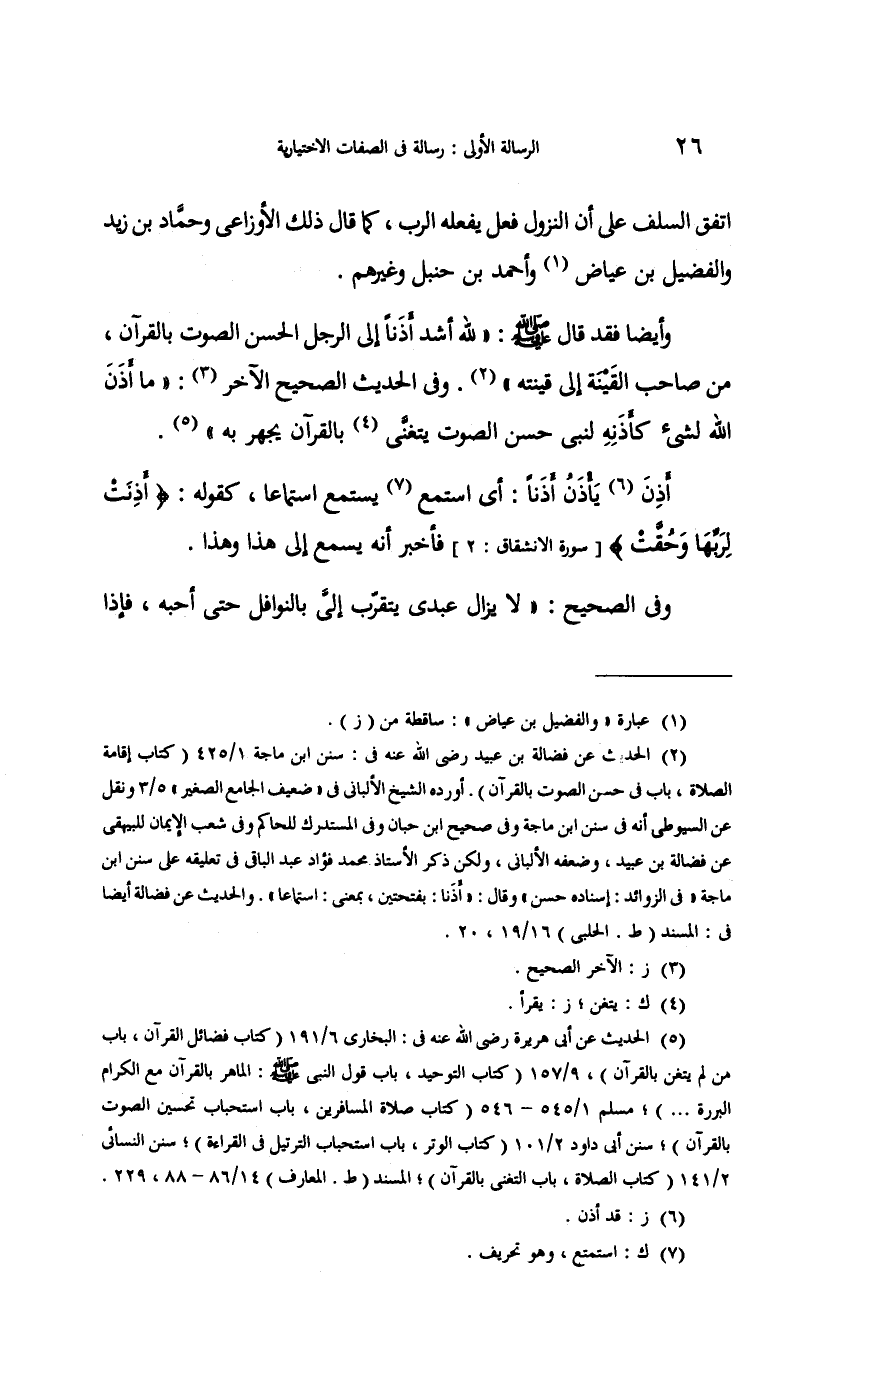 ٢٦ الرسالة الأولى : رسالة فى الصفات الاختيارية
اتفق السلف على أن النزول فعل يفعله الرب ، كما قال ذلك الأوزاعى وحمَّاد بن زيد
والفضيل بن عياض (١) وأحمد بن حنبل وغيرهم .
وأيضا فقد قال ﷺ : « لله أشد أَذَناً إلى الرجل الحسن الصوت بالقرآن ،
من صاحب القَيْنَة إلى قينته » (٢) . وفى الحديث الصحيح الآخر (٣) : « ما أَذَنَ
الله لشىء كأَذَنِهِ لنبى حسن الصوت يتغنَّى (٤) بالقرآن يجهر به » (٥) .
أَذِنَ (٦) يَأْذَنُ أَذَناً : أى استمع (٧) يستمع استماعا ، كقوله : ﴿ أَذِنَتْ
لِرَبِّهَا وَحُقَّتْ ﴾ [ سورة الانشقاق : ٢ ] فأخبر أنه يسمع إلى هذا وهذا .
وفى الصحيح : « لا يزال عبدى يتقرّب إلىَّ بالنوافل حتى أحبه ، فإذا
(١) عبارة « والفضيل بن عياض » : ساقطة من ( ز ) .
(٢) الحديث عن فضالة بن عبيد رضى الله عنه فى : سنن ابن ماجة ٤٢٥/١ ( كتاب إقامة
الصلاة ، باب فى حسن الصوت بالقرآن ) . أورده الشيخ الألبانى فى « ضعيف الجامع الصغير » ٣/٥ ونقل
عن السيوطى أنه فى سنن ابن ماجة وفى صحيح ابن حبان وفى المستدرك للحاكم وفى شعب الإيمان للبيهقى
عن فضالة بن عبيد ، وضعفه الألبانى ، ولكن ذكر الأستاذ محمد فؤاد عبد الباقى فى تعليقه على سنن ابن
ماجة « فى الزوائد : إسناده حسن » وقال : « أَذَنا : بفتحتين ، بمعنى : استماعا » . والحديث عن فضالة أيضا
فى : المسند ( ط . الحلبى ) ١٩/١٦ ، ٢٠ .
(٣) ز : الآخر الصحيح .
(٤) ك : يتغن ؛ ز : يقرأ .
(٥) الحديث عن أبى هريرة رضى الله عنه فى : البخارى ١٩١/٦ ( كتاب فضائل القرآن ، باب
من لم يتغن بالقرآن ) ، ١٥٧/٩ ( كتاب التوحيد ، باب قول النبى ﷺ : الماهر بالقرآن مع الكرام
البررة ... ) ؛ مسلم ٥٤٥/١ – ٥٤٦ ( كتاب صلاة المسافرين ، باب استحباب تحسين الصوت
بالقرآن ) ؛ سنن أبى داود ١٠١/٢ ( كتاب الوتر ، باب استحباب الترتيل فى القراءة ) ؛ سنن النسائى
١٤١/٢ ( كتاب الصلاة ، باب التغنى بالقرآن ) ؛ المسند ( ط . المعارف ) ٨٦/١٤ – ٨٨ ، ٢٢٩ .
(٦) ز : قد أذن .
(٧) ك : استمتع ، وهو تحريف .